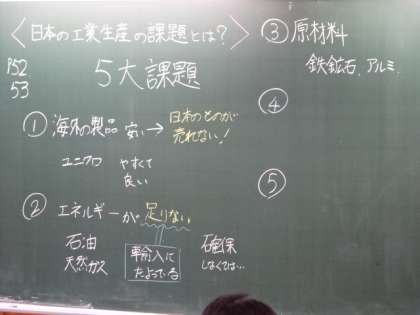 <日本の工業生産の課題とは?>
P52
53
5大課題
① 海外の製品 安い→ 日本のものが
売れない!
ユニクロ やすくて
良い
② エネルギーが足りない
石油
天然ガス
輸入に
たよっている
確保
しなくては…
③ 原材料
鉄鉱石、アルミ、
④
⑤